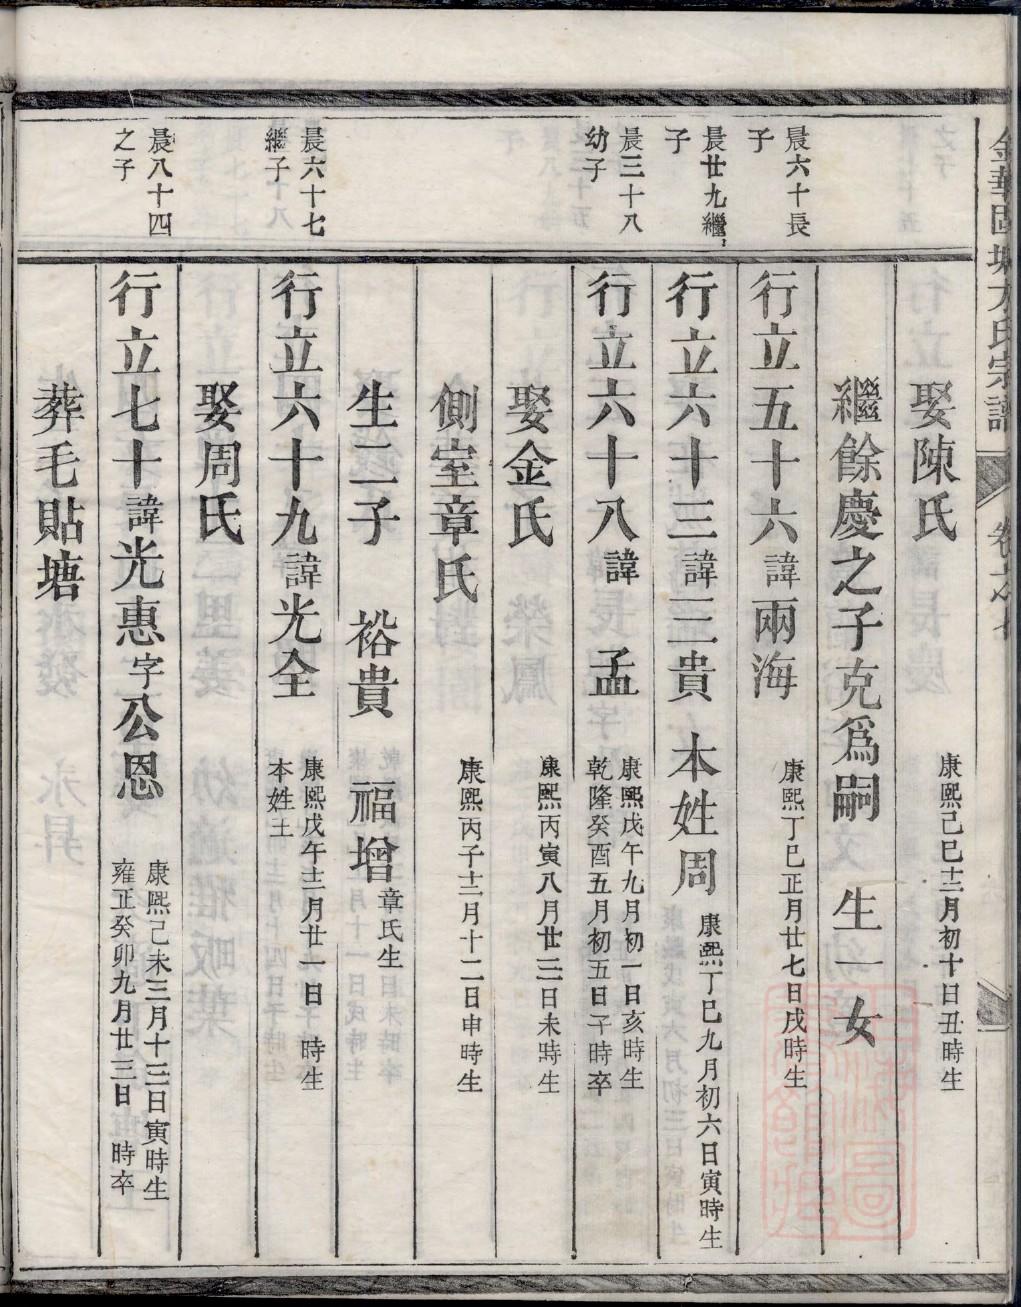 娶陳氏 康熙己巳十二月初十日丑時生
繼餘慶之子克爲嗣 生一女
晨六十長子
行立五十六諱兩海 康熙丁巳正月廿七日戌時生
晨廿九繼子
行立六十三諱三貴 本姓周 康熙丁巳九月初六日寅時生
晨三十八幼子
行立六十八諱 孟 康熙戊午九月初一日亥時生
乾隆癸酉五月初五日子時卒
娶金氏 康熙丙寅八月廿三日未時生
側室章氏 康熙丙子十二月十二日申時生
生二子 裕貴 福增 章氏生
晨六十七繼子
行立六十九諱光全 康熙戊午十二月廿一日 時生
本姓王
娶周氏
晨八十四之子
行立七十諱光惠字公恩 康熙己未三月十三日寅時生
雍正癸卯九月廿三日 時卒
葬毛貼塘